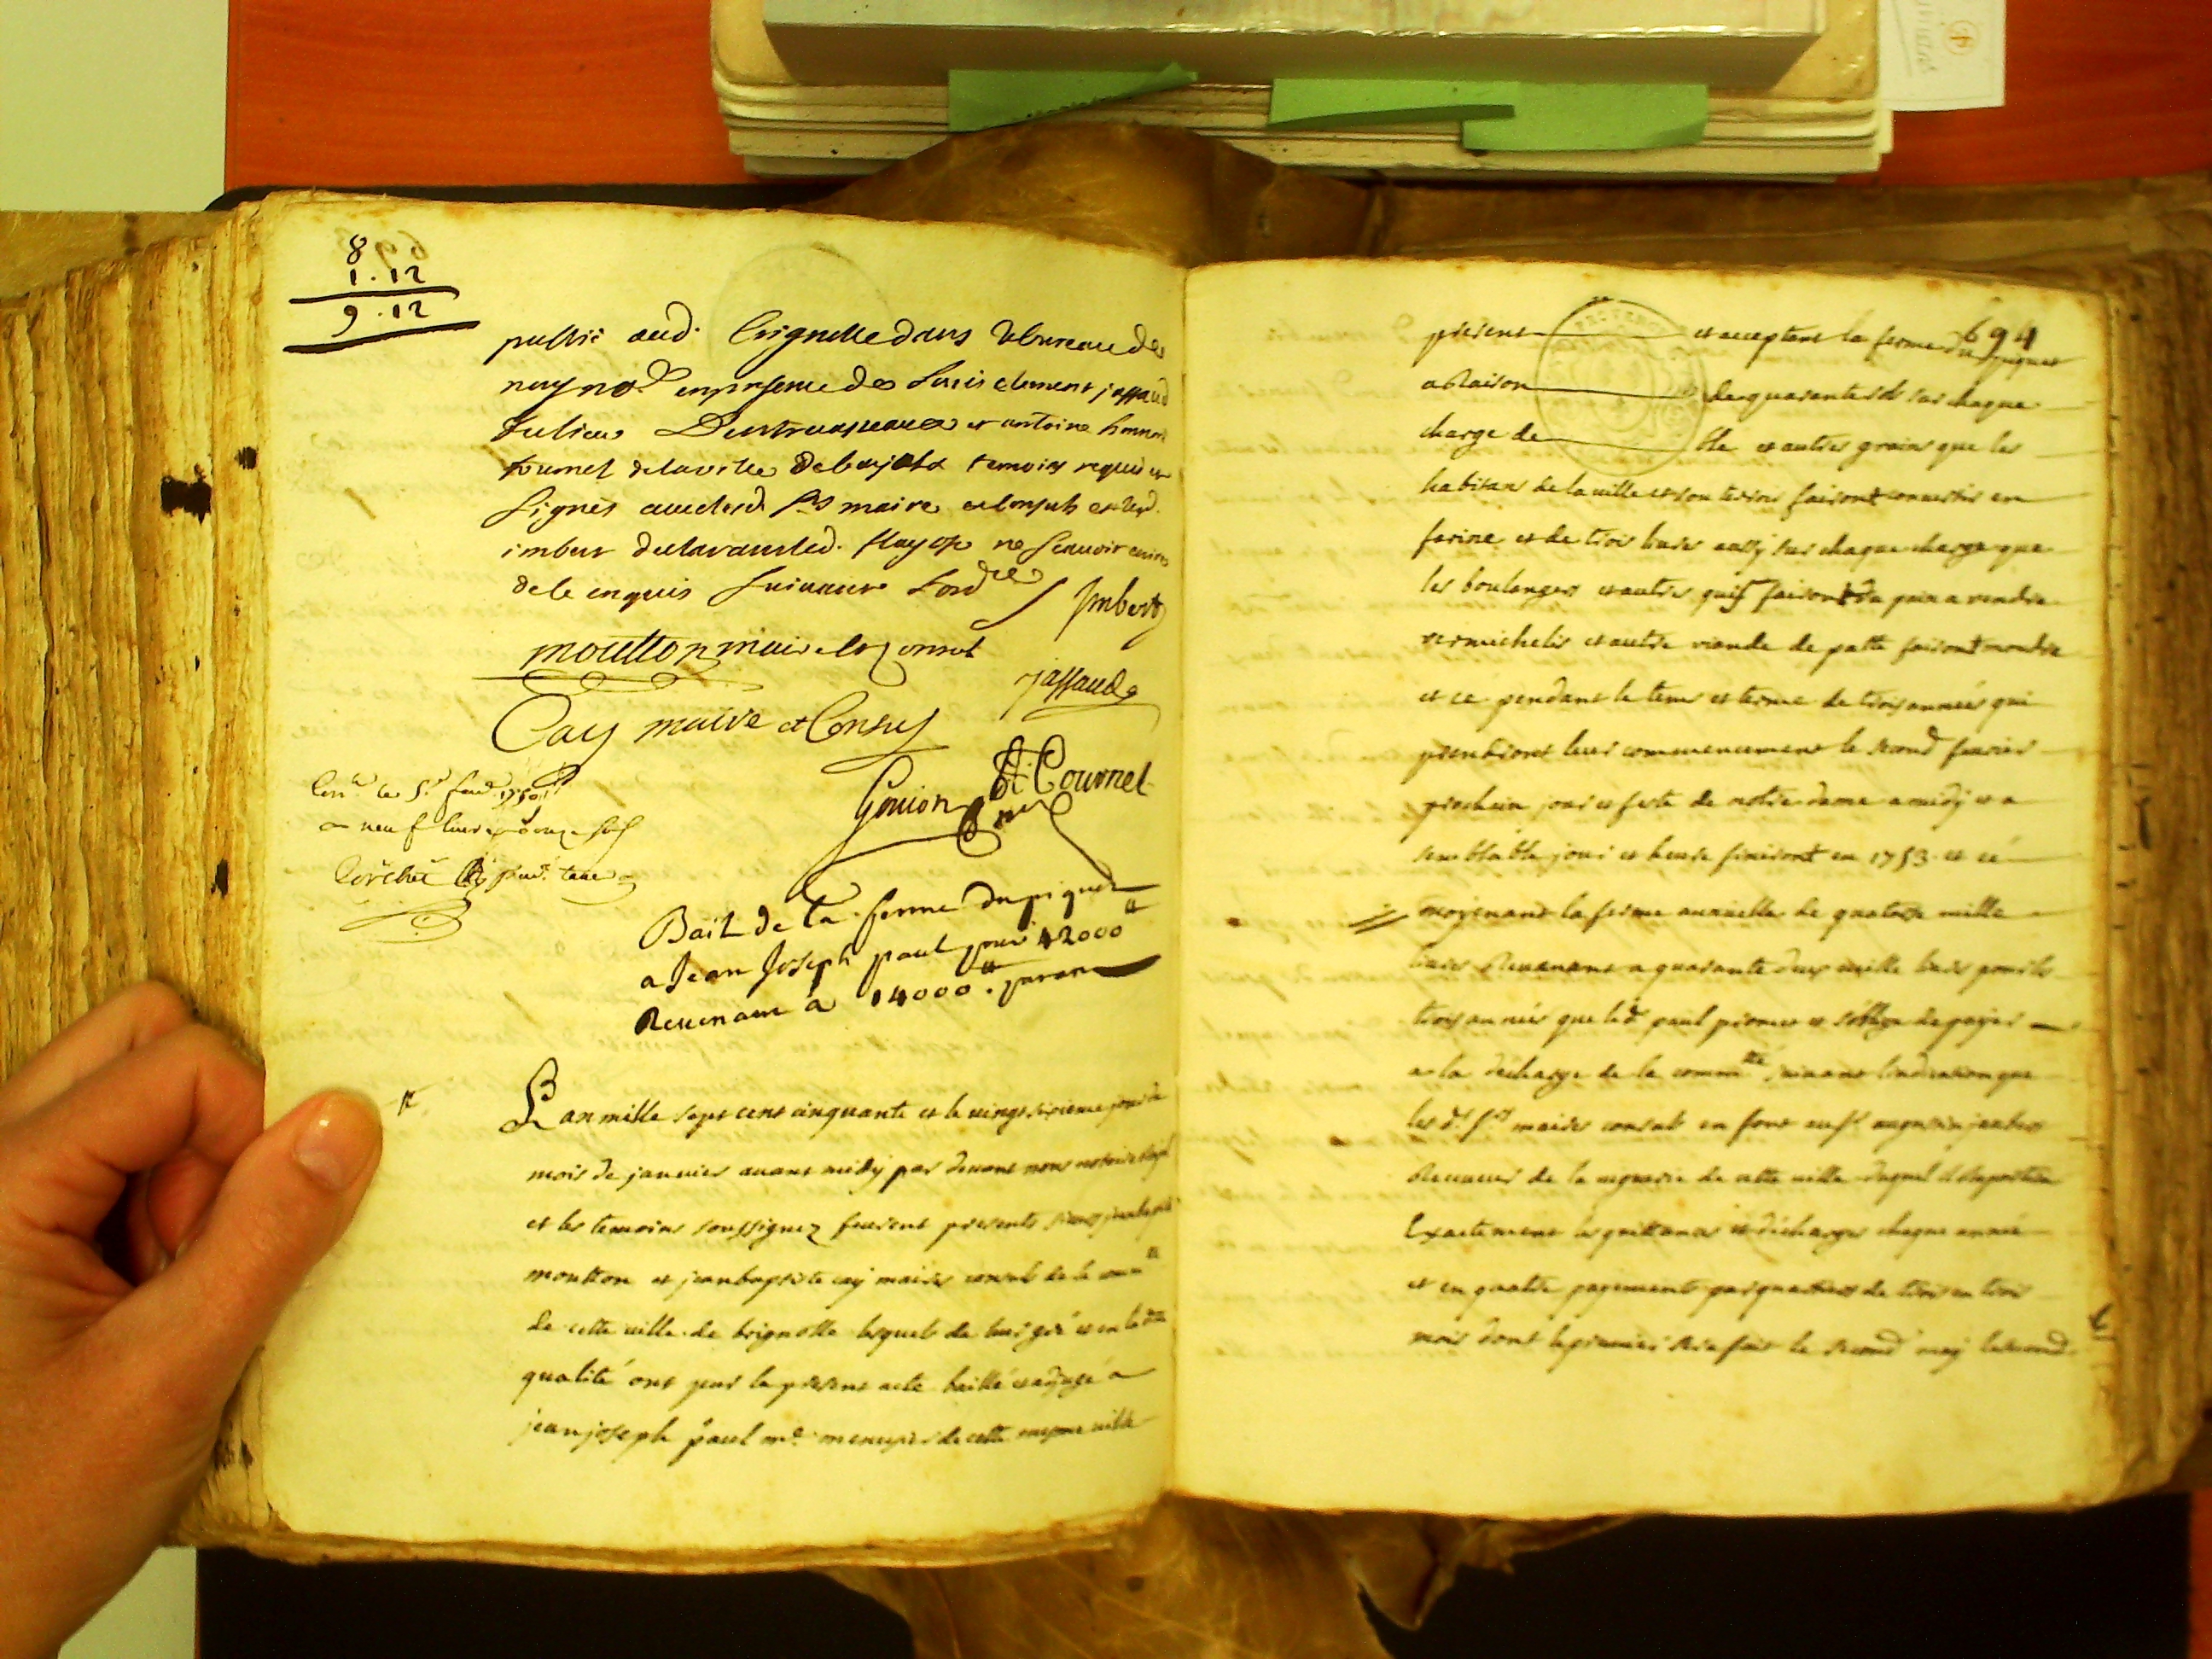 8
1 . 12
9 . 12
publié aud. Brignolle dans le bureau de
nous no.e en presence de Louis clement jassaud
et antoine honnoré
tournel de la ville de temoins requis et
signés avec lesd. srs maire et consuls et led.
imbert de ne sçavoir ecrire
de ce enquis suivant Lord.ce Imbert
moutton maire et Consul
jassaud
Cay maire et Consul
Gouion
A. H. Tournel
Con.lé le 5.e fev.r 1750
a neuf livres douze sols
Bail de la ferme du piquet
a Jean Joseph paul pour 42000 ll
Revenant a 14000 ll . par an
L'an mille sept cent cinquante et le vingt sixieme jour du
mois de janvier avant midy par devant nous notaire Royal
et les temoins soussignez furent presents sieurs
moutton et jean baptiste cay maires consuls de la com.té
de cette ville de brignolle lesquels de leur gré et en lad.te
qualité ont par le present acte baillé et adjugé a
jean joseph paul m.e menuzier de cette mesme ville
694
present et acceptant la ferme du piquet
a Raison de quarante sols sur chaque
charge de ble et autres grains que les
habitans de la ville et son terroir fairont convertir en
farine et de trois livres aussy sur chaque charge que
les boulangers et autres quy fairont du pain a vendre
vermichelis et autre viande de patte fairont moudre
et ce pendant le tems et terme de trois années qui
prendront leur commencement le second fevrier
prochain jour et feste de notre dame a midy et a
semblable jour et heure finiront en 1753. et ce
moyenant la ferme annuelle de quatorze mille
livres Revenant a quarante deux mille livres pour les
trois années que led. paul promet et s'oblige de payer
a la decharge de la comm.té suivant l'indication que
les d. srs maires consuls en font au sr
Receveur de la viguerie de cette ville duquel il Raportera
Exactement les quittances et decharges chaque année
et en quatre payements par quartiers de trois en trois
mois dont le premier sera fait le second may le second